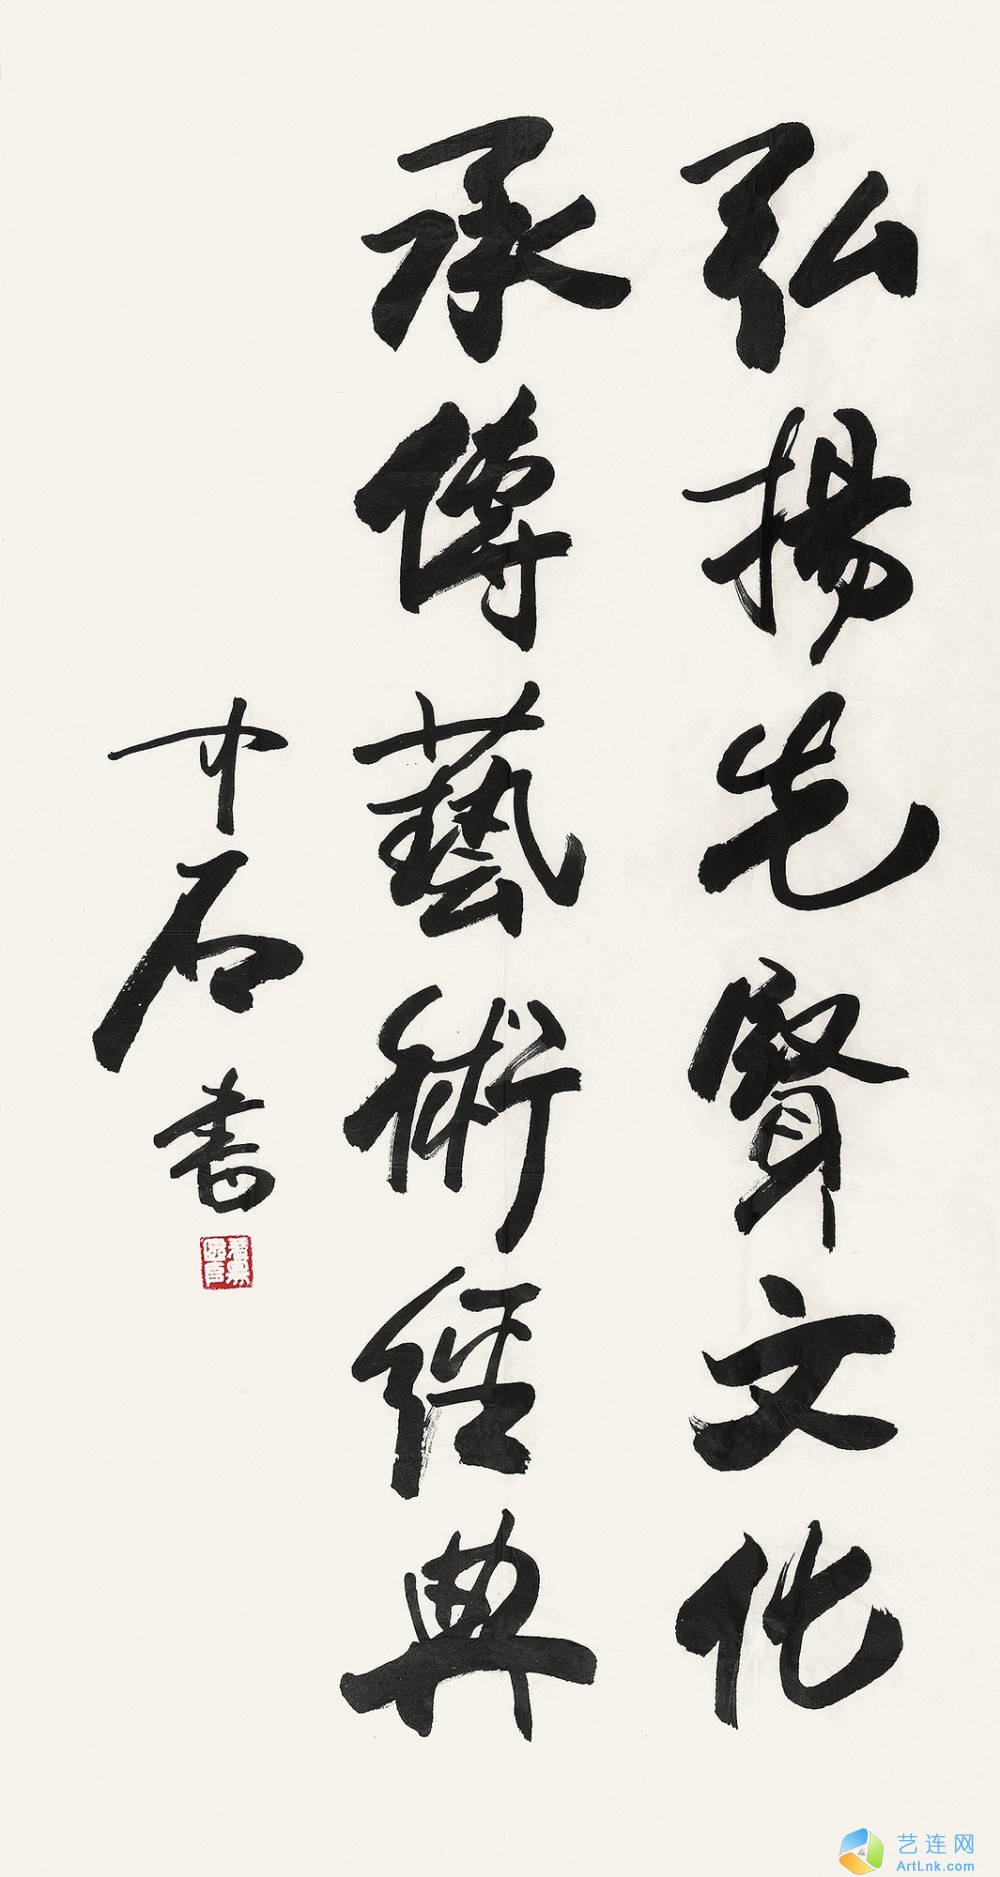 弘揚先賢文化
承傳藝術經典
中石書
艺连网
ArtLnk.com